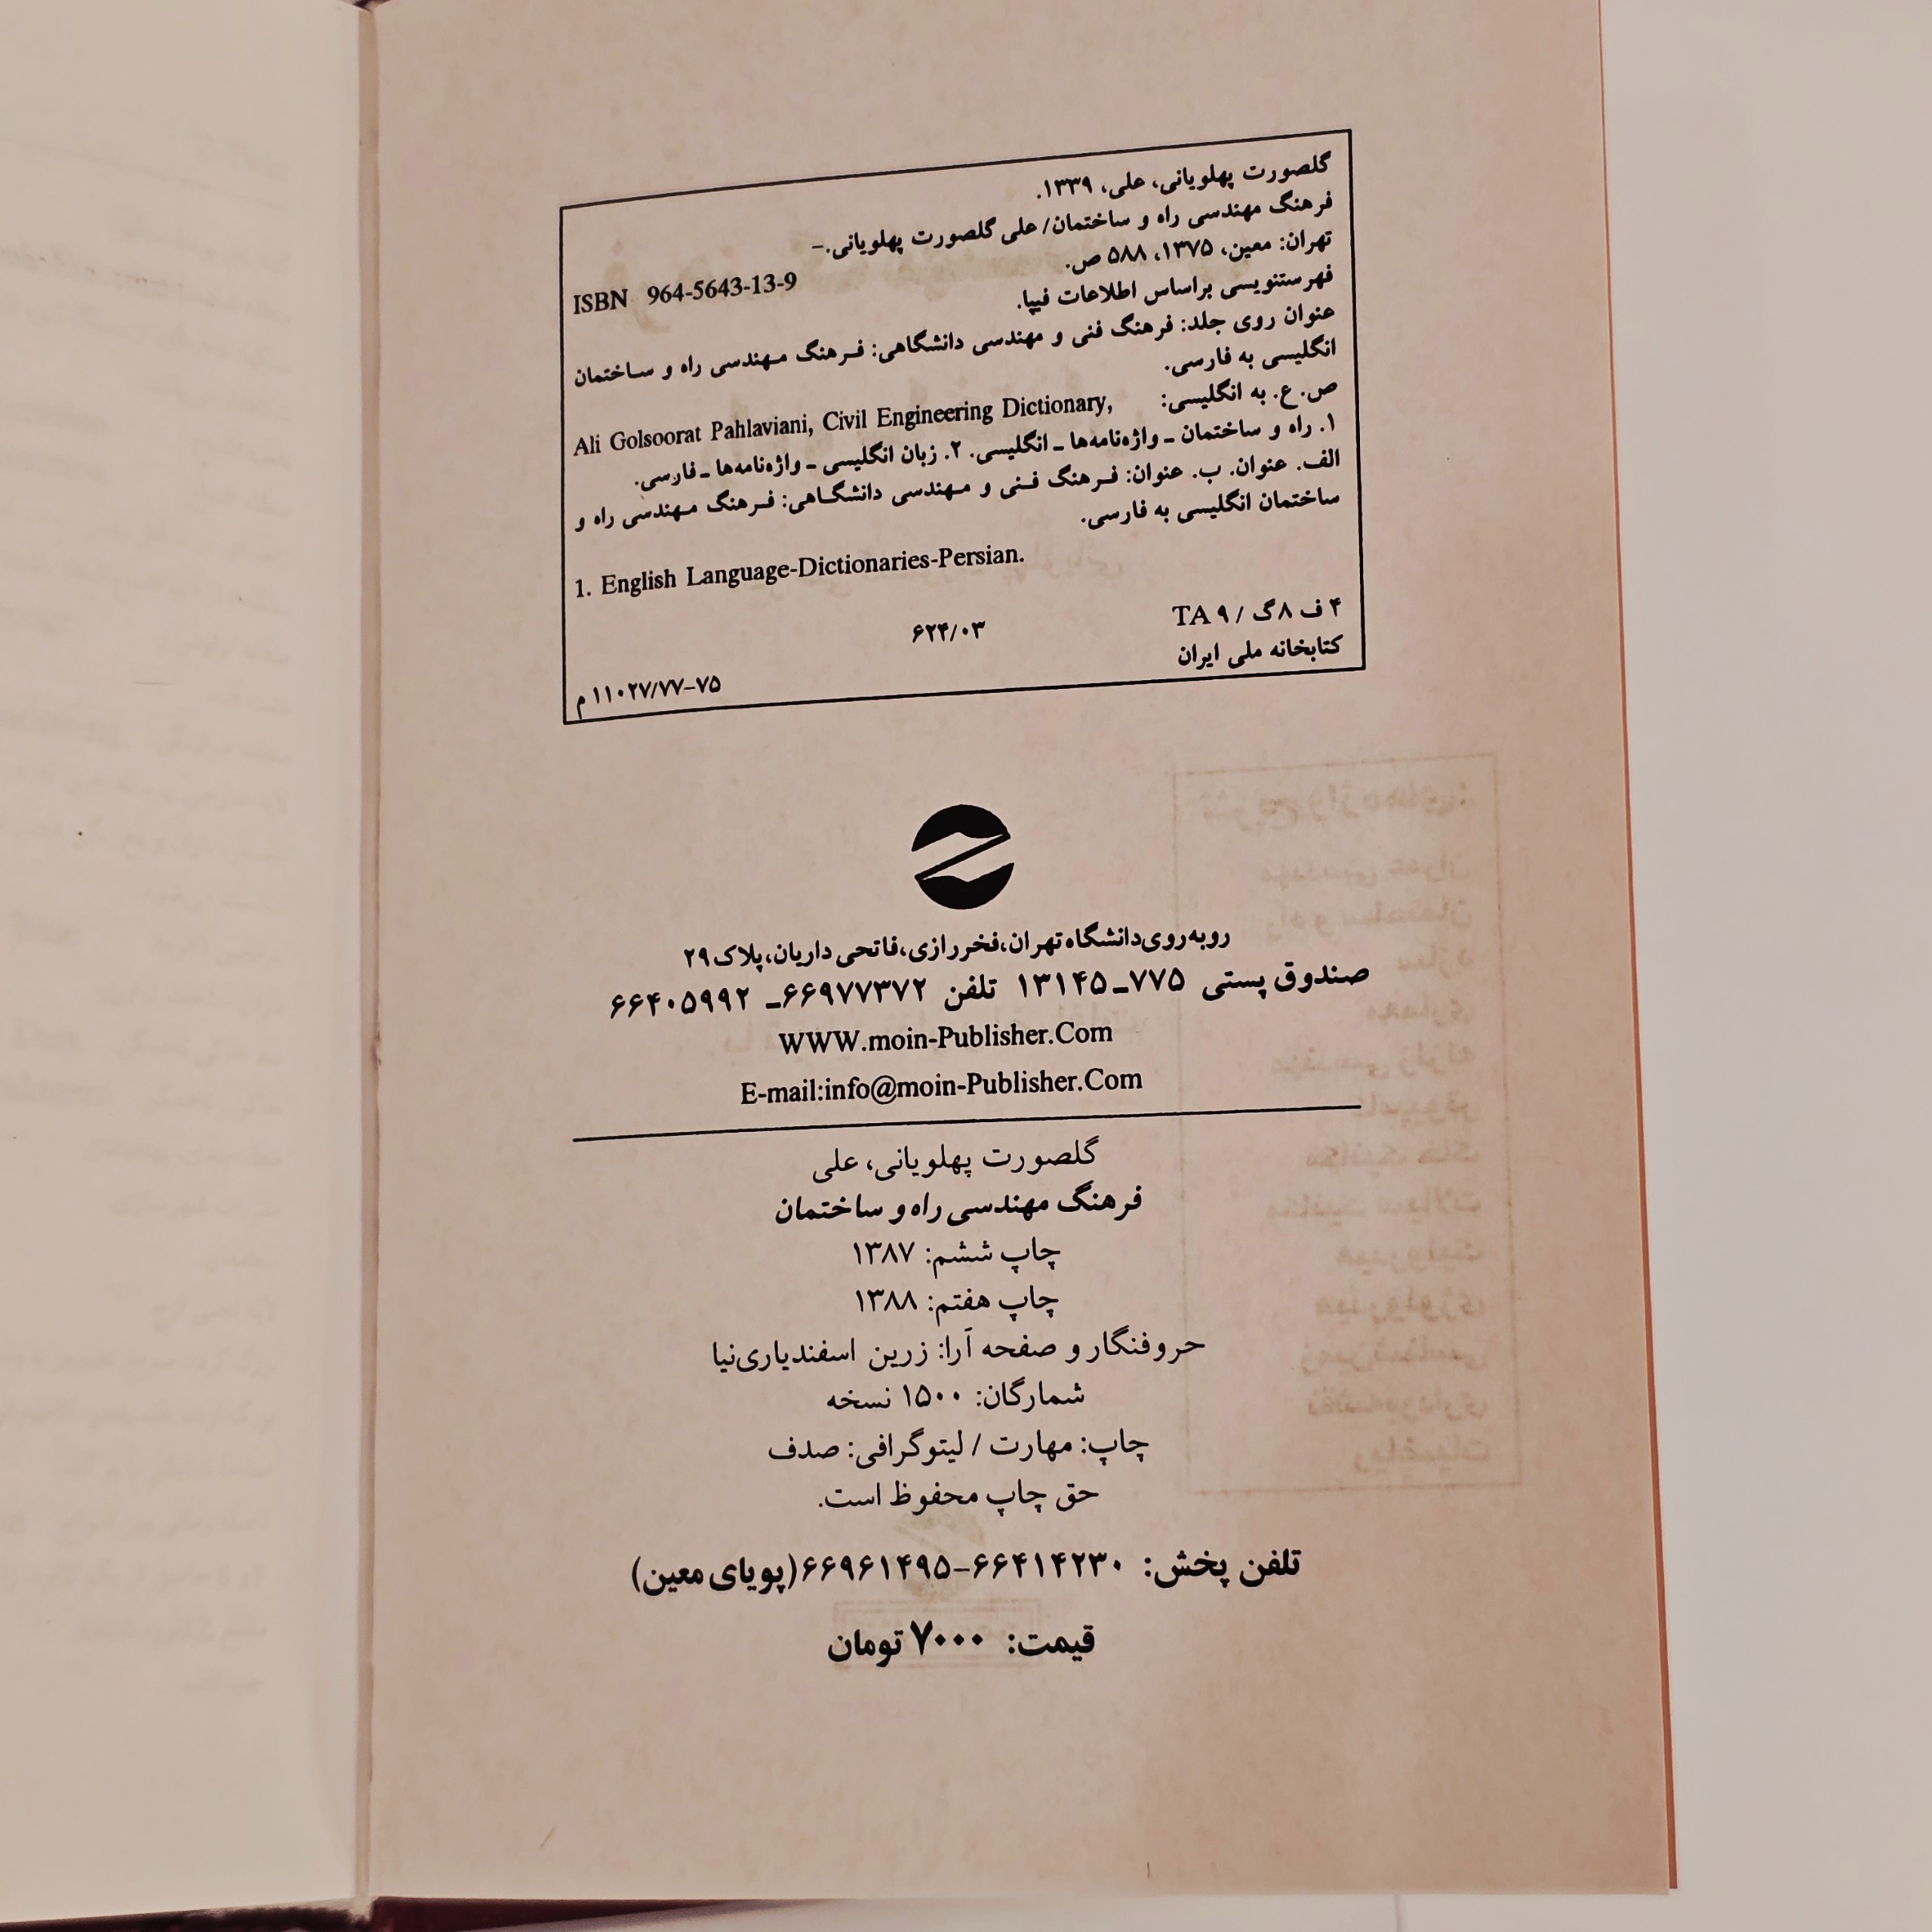 گلصورت پهلویانی، علی، ۱۳۳۹.
فرهنگ مهندسی راه و ساختمان/ علی گلصورت پهلویانی.–
تهران: معین، ۱۳۷۵، ۵۸۸ ص.
ISBN 964-5643-13-9
فهرستنویسی براساس اطلاعات فیپا.
عنوان روی جلد: فرهنگ فنی و مهندسی دانشگاهی: فرهنگ مهندسی راه و ساختمان
انگلیسی به فارسی.
ص. ع. به انگلیسی: Ali Golsoorat Pahlaviani, Civil Engineering Dictionary,
۱. راه و ساختمان ـ واژه‌نامه‌ها ـ انگلیسی. ۲. زبان انگلیسی ـ واژه‌نامه‌ها ـ فارسی.
الف. عنوان. ب. عنوان: فرهنگ فنی و مهندسی دانشگاهی: فرهنگ مهندسی راه و
ساختمان انگلیسی به فارسی.
1. English Language-Dictionaries-Persian.
۴ ف ۸ گ / ۹ TA
۶۲۴/۰۳
کتابخانه ملی ایران
۱۱۰۲۷/۷۷–۷۵ م
روبه‌روی دانشگاه تهران، فخررازی، فاتحی داریان، پلاک ۲۹
صندوق پستی ۷۷۵ـ۱۳۱۴۵ تلفن ۶۶۹۷۷۳۷۲ـ ۶۶۴۰۵۹۹۲
WWW.moin-Publisher.Com
E-mail:info@moin-Publisher.Com
گلصورت پهلویانی، علی
فرهنگ مهندسی راه و ساختمان
چاپ ششم: ۱۳۸۷
چاپ هفتم: ۱۳۸۸
حروفنگار و صفحه آرا: زرین اسفندیاری‌نیا
شمارگان: ۱۵۰۰ نسخه
چاپ: مهارت / لیتوگرافی: صدف
حق چاپ محفوظ است.
تلفن پخش: ۶۶۴۱۴۲۳۰–۶۶۹۶۱۴۹۵(پویای معین)
قیمت: ۷۰۰۰ تومان